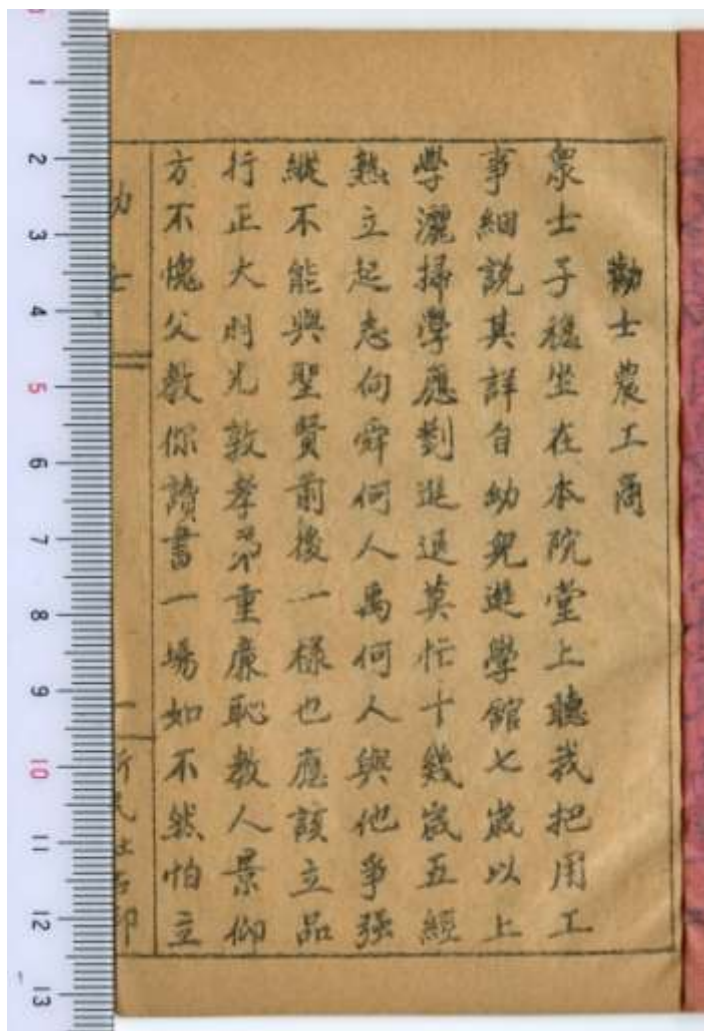 勸士農工商
衆士子穩坐在本院堂上聽我把用工
事細說其詳自幼兒進學館七歲以上
學灑掃學應對進退莫忙十幾歲五經
熟立起志向舜何人禹何人與他爭強
縱不能與聖賢前後一樣也應該立品
行正大明光敦孝弟重廉恥教人景仰
方不愧父教你讀書一場如不然怕立
勸士
一
1
2
3
4
5
6
7
8
9
10
11
12
13